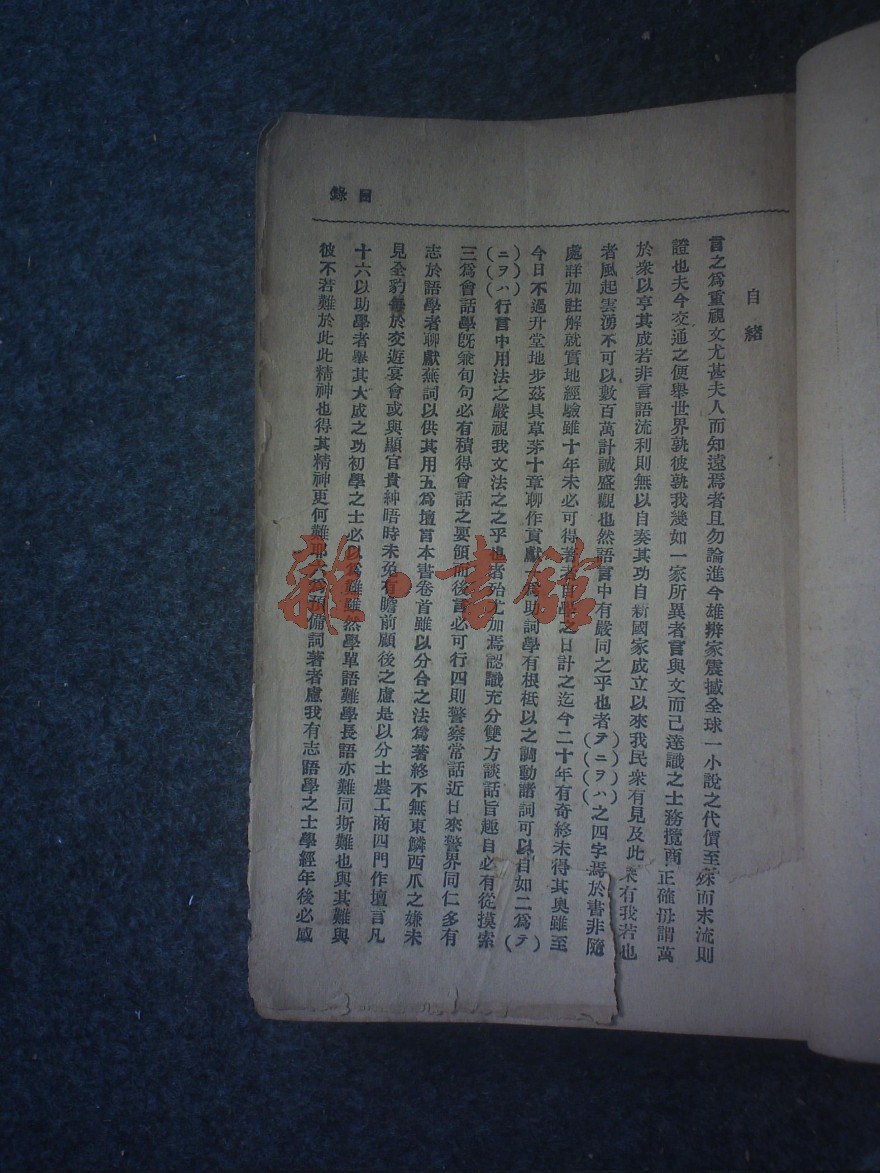 目錄
自緒
言之爲重視文尤甚夫人而知遠焉者且勿論進今雄辯家震撼全球一小說之代價至 而末流則
證也夫今交通之便舉世界孰彼孰我幾如一家所異者言與文而已達識之士務攬 正確毋謂萬
於衆以享其成若非言語流利則無以自奏其功自新國家成立以來我民衆有見及此 有我若也
者風起雲湧不可以數百萬計誠盛觀也然語言中有嚴同之乎也者(テ)(ニ)(ヲ)(ハ)之四字焉於書非隨
處詳加註解就實地經驗雖十年未必可得著者自學之日計之迄今二十年有奇終未得其奧雖至
今日不過升堂地步茲具草茅十章聊作貢獻一爲助詞學有根柢以之調動諸詞可以自如二爲(テ)
(ニ)(ヲ)(ハ)行言中用法之嚴視我文法之之乎也者殆尤加焉認識充分雙方談話旨趣自必有從摸索
三爲會話學旣兼旬句必有積得會話之要領而後言必可行四則警察常話近日來警界同仁多有
志於語學者聊獻蕪詞以供其用五爲壇言本書卷首雖以分合之法爲著終不無東鱗西爪之嫌未
見全豹每於交遊宴會或與顯官貴紳晤時未免有瞻前顧後之慮是以分士農工商四門作壇言凡
十六以助學者舉其大成之功初學之士必以爲難雖然學單語難學長語亦難同斯難也與其難與
彼不若難於此此精神也得其精神更何難耶六爲預備詞著者慮我有志語學之士學經年後必感
雜·書館